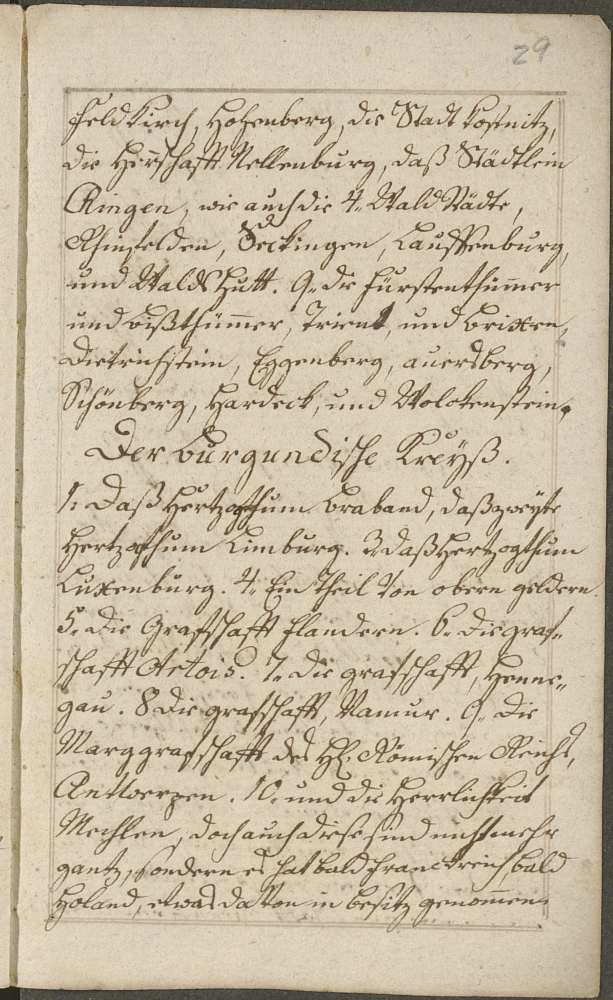 29
Feldkirch, Hohenberg, die Stadt Costnitz,
die Herschafft Nellenburg, daß Städtlein
Ringen, wie auch die 4. Wald Städte,
Rhinfelden, Seckingen, Lauffenburg,
und Waldshutt. 9. die Fürstenthümer
und bißthümer, Trient, und brixen,
Dietrichstein, Eggenberg, auersberg,
Schönberg, Hardeck, und Wolckenstein.
Der burgundische Kreÿß.
1. Daß Hertzogthum braband, daß zweÿte
Hertzogthum Limburg. 3. daß Hertzogthum
Luxenburg. 4. Ein theil von obern geldern.
5. die Grafschafft flandern. 6. die graf„
schafft Artois. 7. die grafschafft, Henne„
gau. 8 die grafschafft, Namur. 9. die
Marggrafschafft des Hl. Römischen Reichs,
Antwerpen. 10. und die Herrlichkeit
Mechlen, doch auch diese sind nicht mehr
gantz, sondern es hat bald franckreich bald
Holand, etwas davon in besitz genomen.